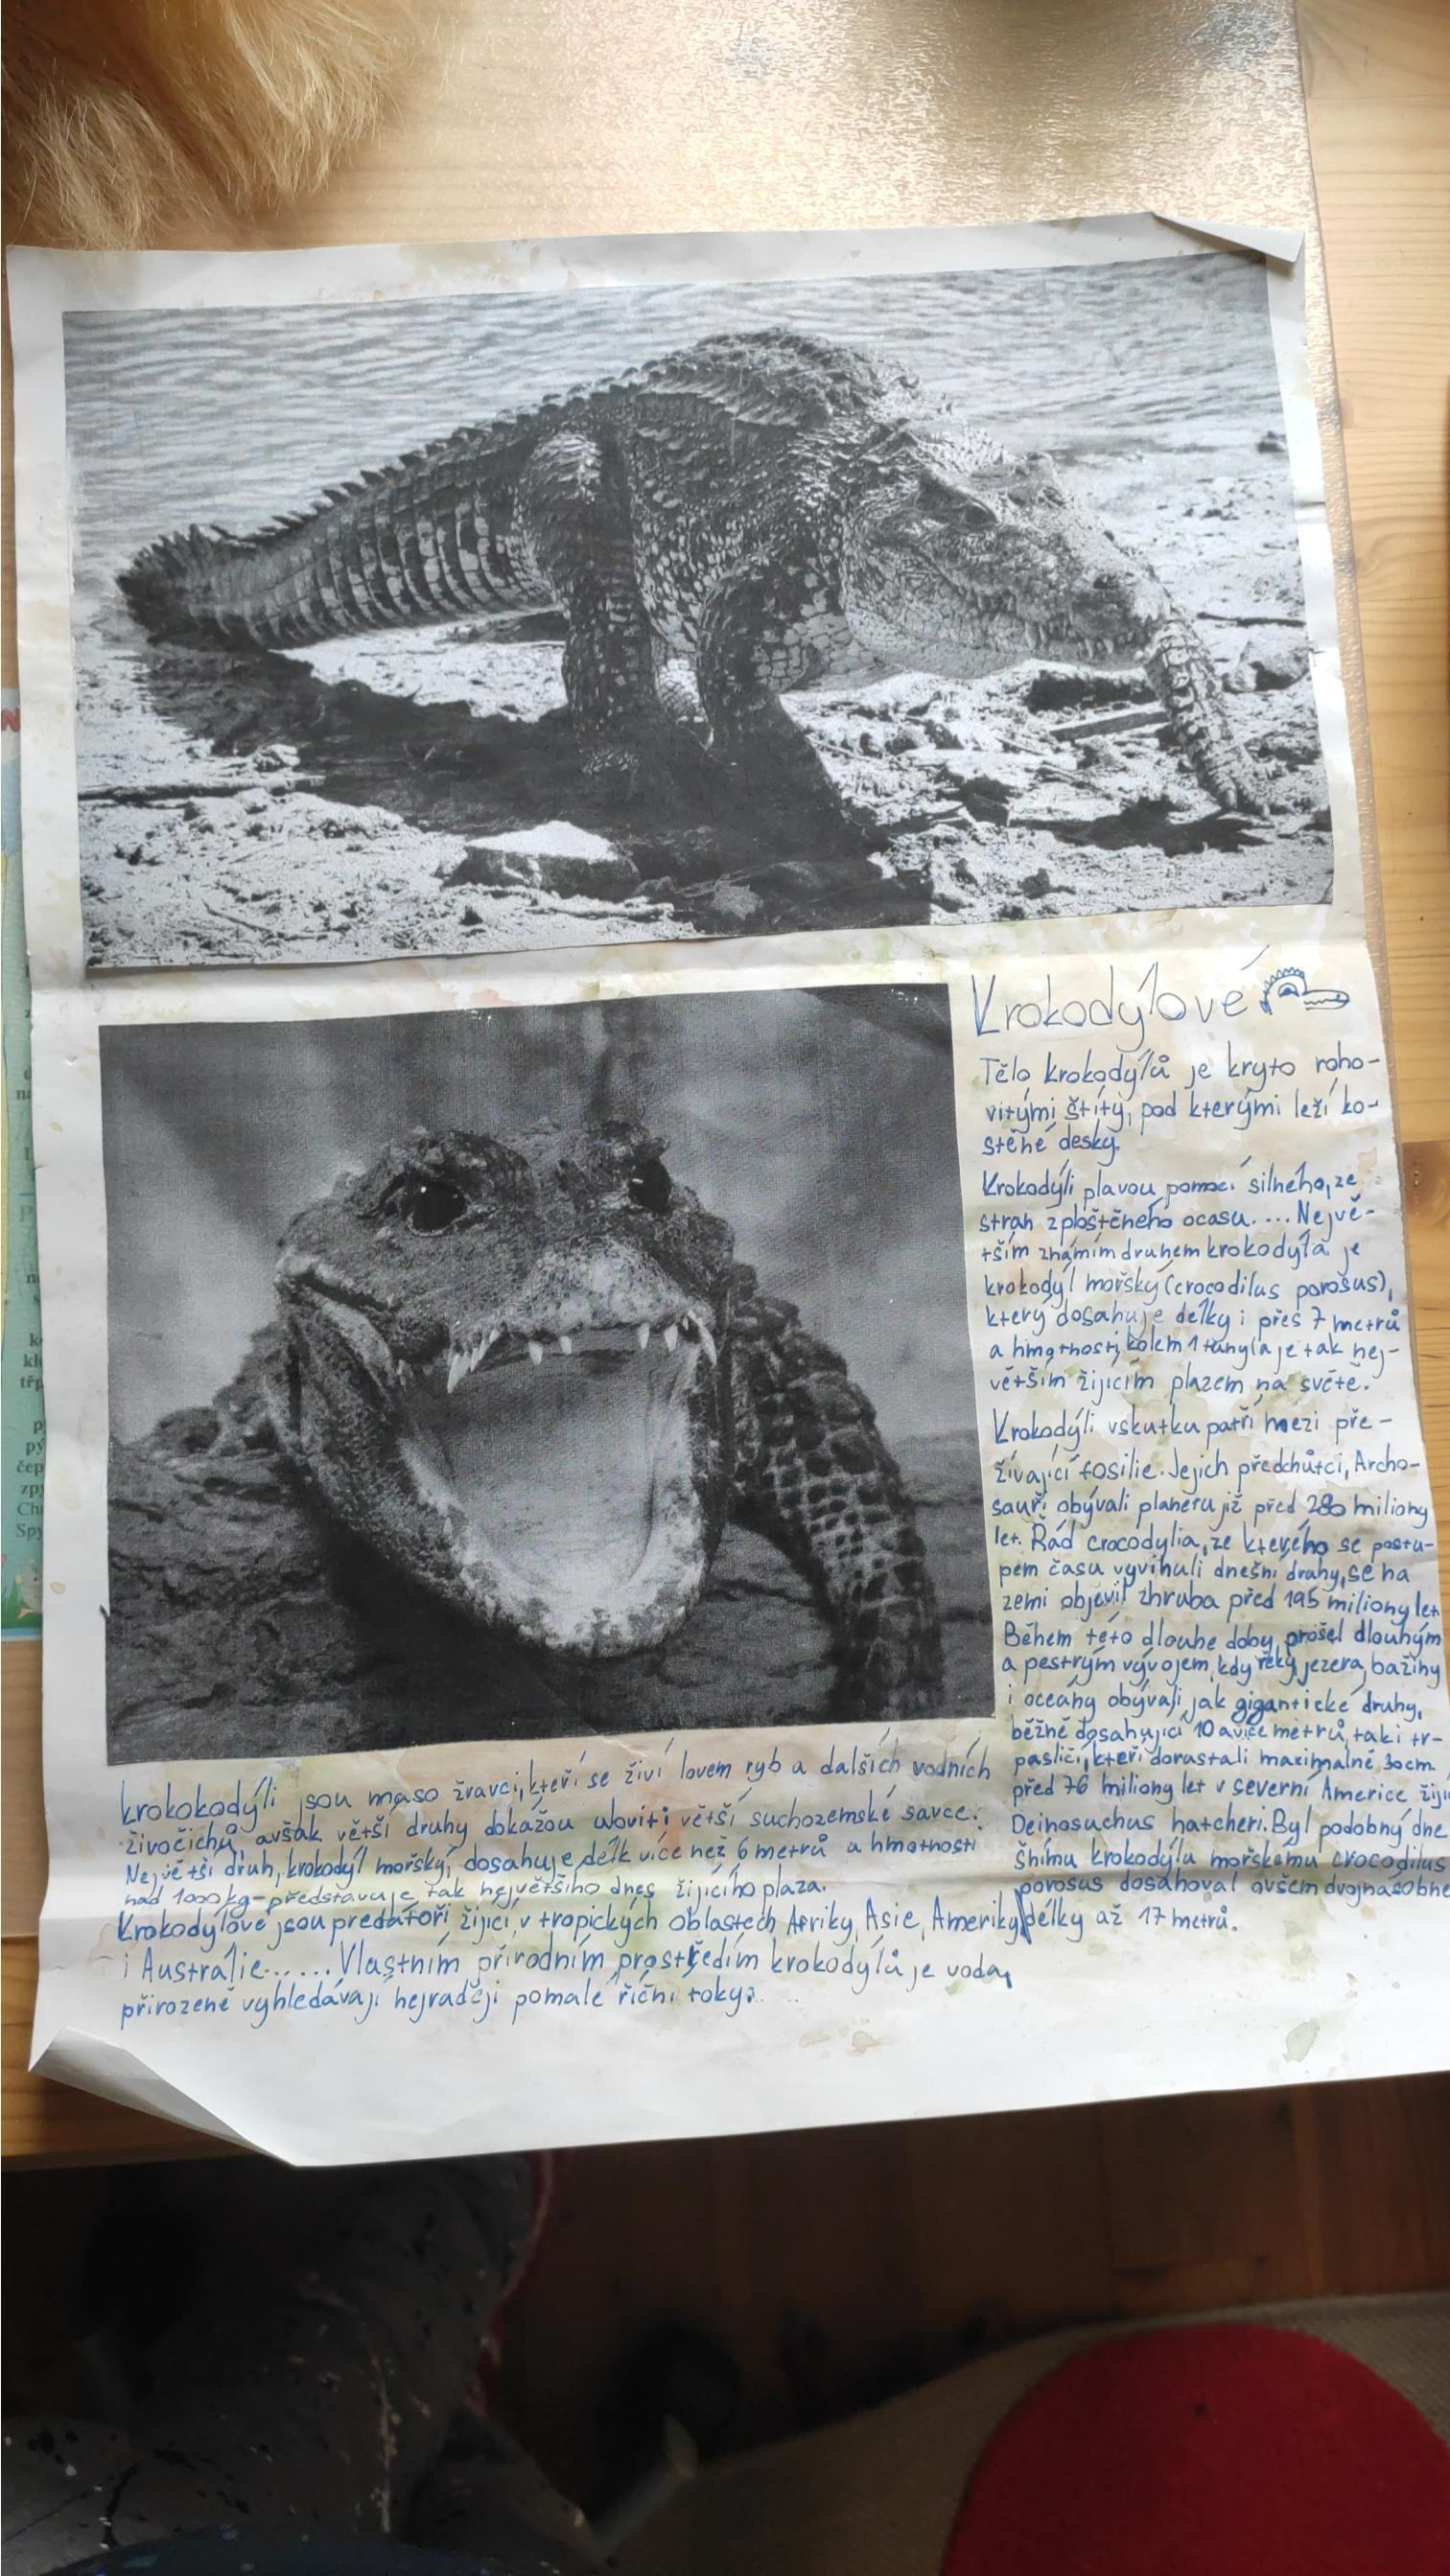 Krokodýlové
Tělo krokodýlů je kryto roho-
vitými štíty, pod kterými leží ko-
stěné desky.
Krokodýli plavou pomocí silného, ze
stran zploštěného ocasu.... Nejvě-
tším známím druhem krokodýla je
krokodýl mořský (crocodilus porosus),
který dosahuje délky i přes 7 metrů
a hmotnosti kolem 1 tuny (a je tak nej-
větším žijicím plazem na světě.
Krokodýli vskutku patří mezi pře-
žívající fosilie. Jejich předchůtci, Archo-
sauři obývali planetu již před 280 miliony
let. Řád crocodylia, ze kterého se postu-
pem času vyvinuli dnešní druhy, se na
zemi objevil zhruba před 195 miliony let
Během této dlouhe doby prošel dlouhým
a pestrým vývojem, kdy řeky, jezera, bažiny
i oceány obývali jak gigantické druhy,
běžně dosahující 10 a více metrů, tak i tr-
pasličí, kteří dorustali maximalně 30 cm.
před 76 miliony let v severní Americe žiji
Deinosuchus hatcheri. Byl podobný dne
šnímu krokodýlu mořskému crocodilus
porosus dosahoval ovšem dvojnásobne
délky až 17 metrů.
krokokodýli jsou maso žravci, kteří se živí lovem ryb a dalších vodních
živočichů, avšak větší druhy dokážou ulovit i větší suchozemské savce.
Největši druh, krokodýl mořský, dosahuje délk více než 6 metrů a hmotnosti
nad 1000 kg - představuje tak největšiho dnes žijícího plaza.
Krokodýlové jsou predátoři žijicí v tropických oblastech Afriky, Asie, Ameriky
i Austrálie...... Vlastním přirodním prostředím krokodýlů je voda,
přirozeně vyhledávají nejraději pomalé říční toky.